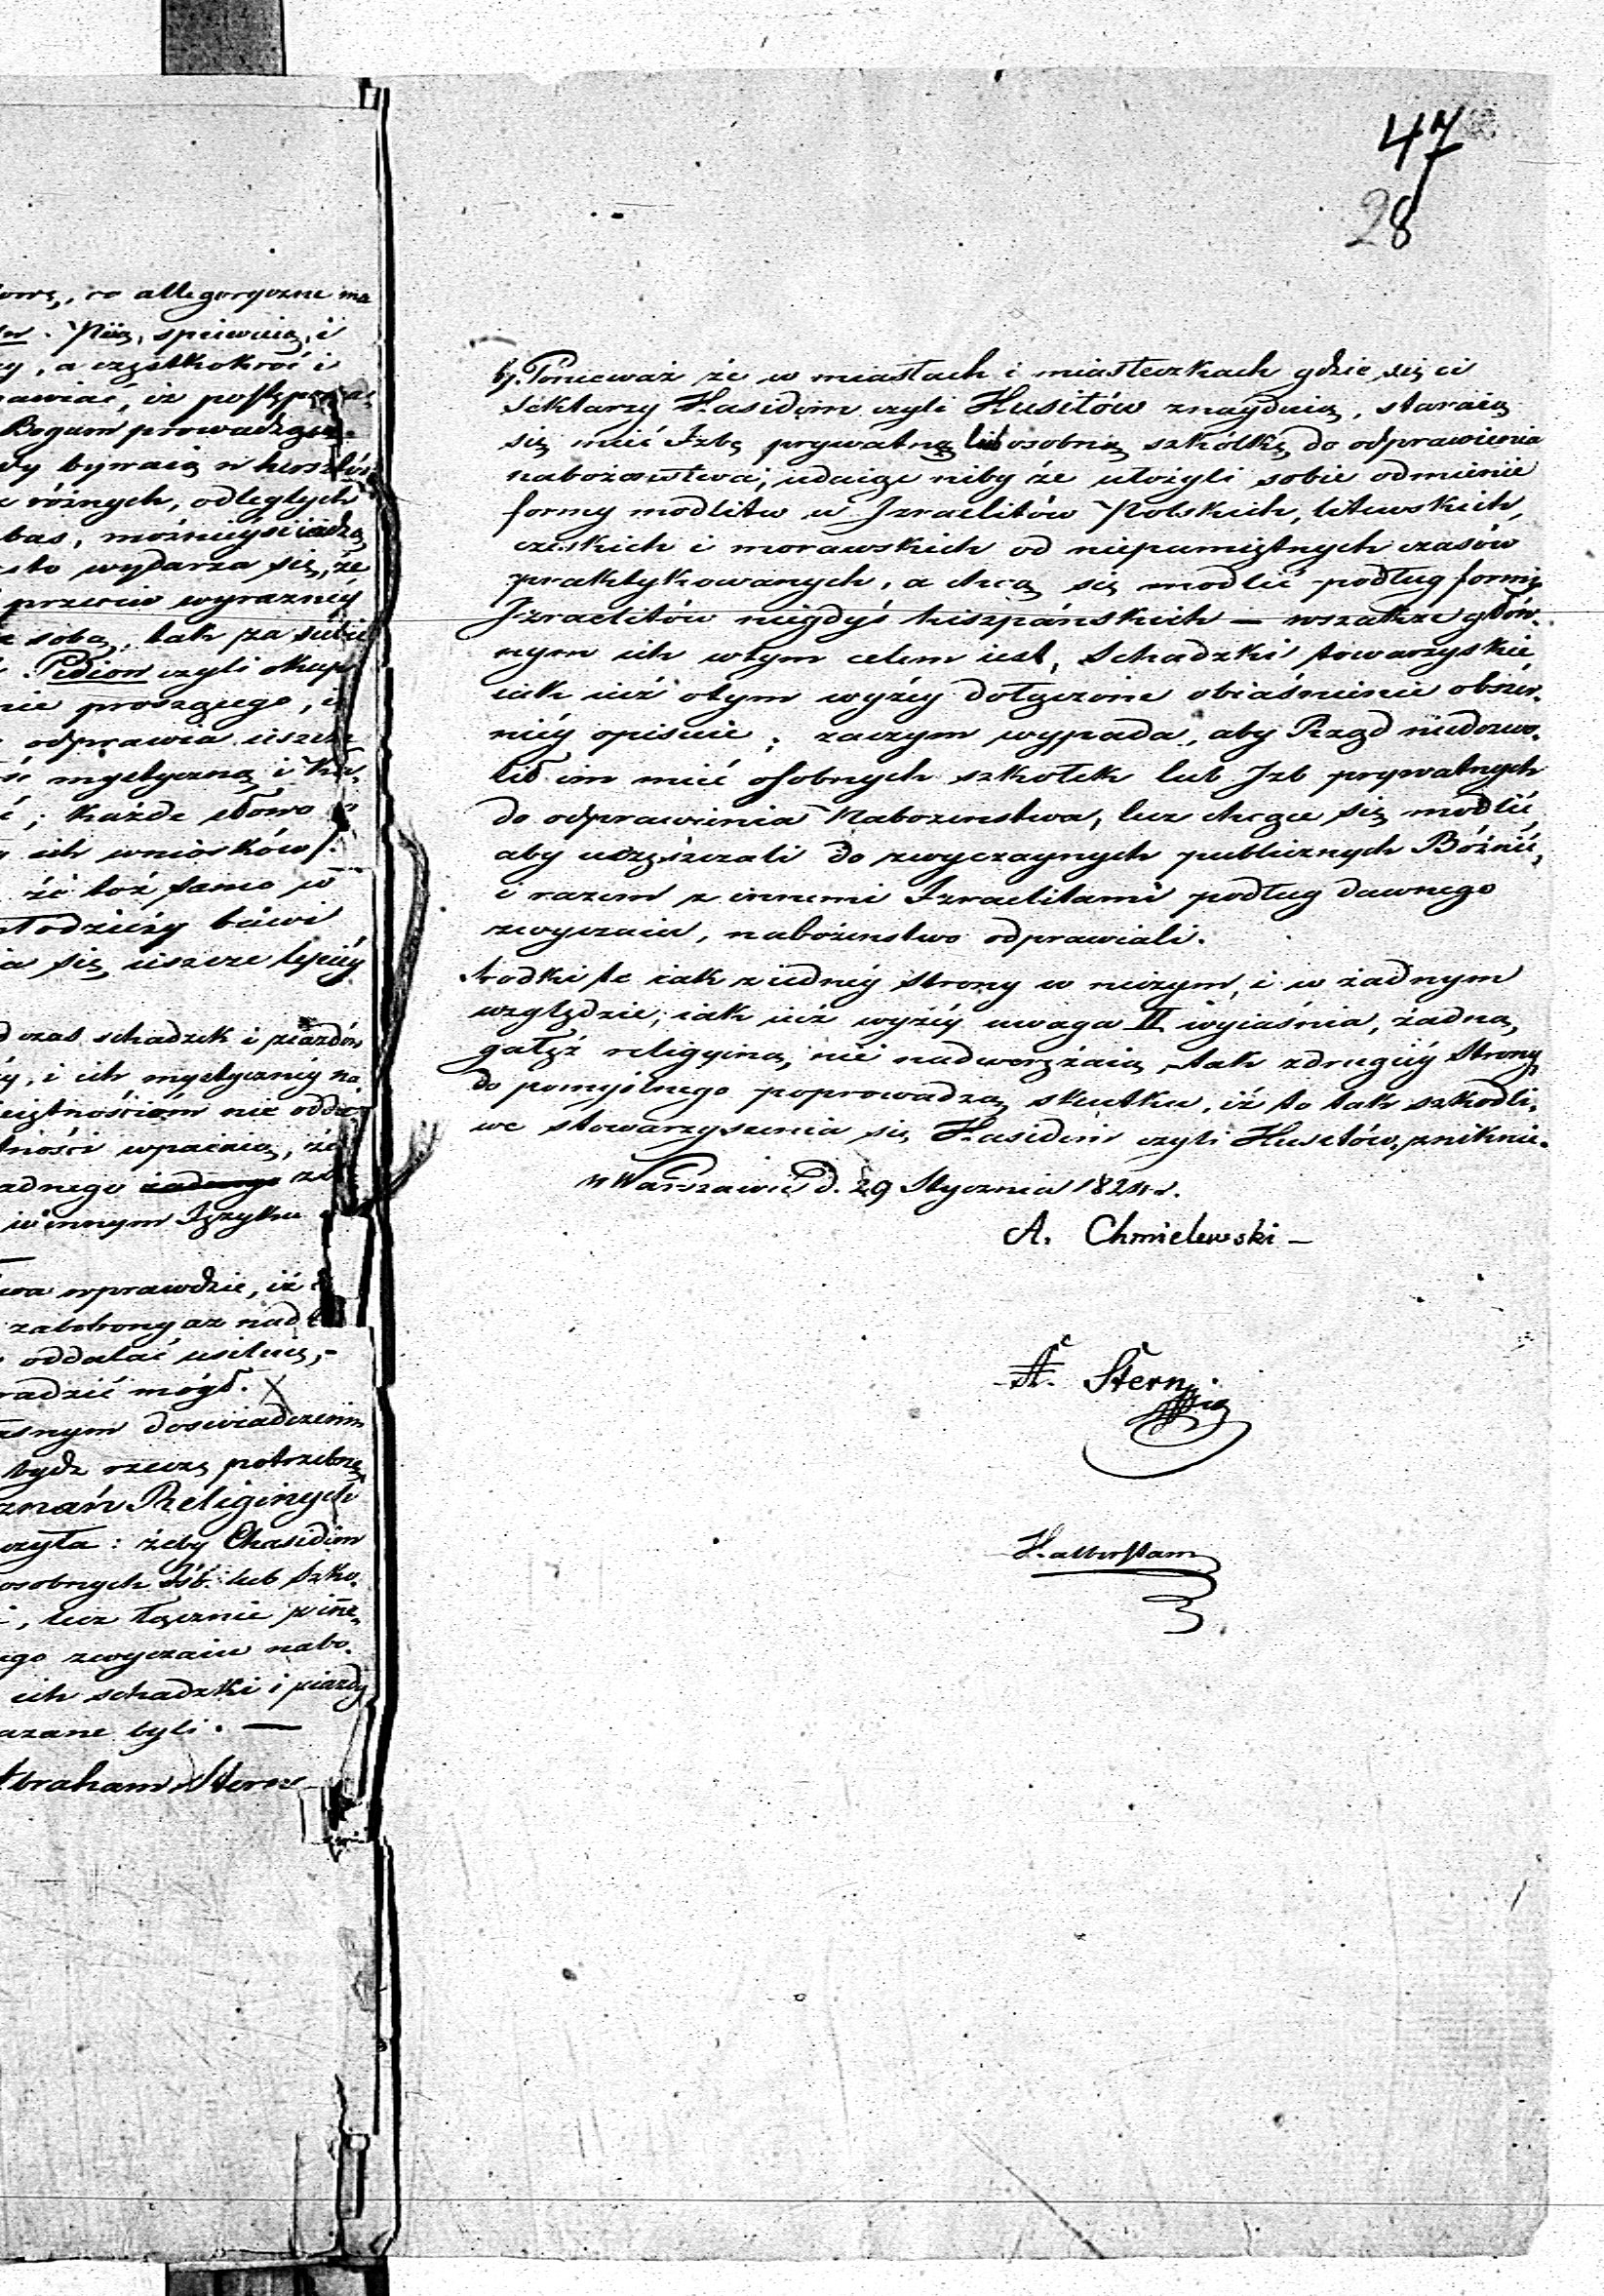 owę, co allegoryczne ma
. Piią, spiewaią, i
, a częstkokroć i
awiać, iż postępowa
Bogiem prowadzą.
bywaią w
różnych, odległych
bas,
sto wydarza się, że
przeciw wyraznéy
sobą, tak za
Pidion czyli okup
nie proszącego, i
odprawia ieszcze
mystyczną i Ka-
; każde słowo
ich wniosków/.
że toż samo w
młodzieży bawi
ia się ieszcze
czas schadzek i ziazdów
y, i ich mystycznéy na-
nie odda-
ności wpaiaią, że
adnego
w innym Języku
wprawdzie, iż
zabobony aż nad
oddalać usilnie,-
radzić mógł.
asnym doswiadczeniem
bydz rzeczą potrzebną
znań Religinych
czyła: żeby Chasidim
osobnych Izb lub szko-
, lecz łącznie z inne-
ego zwyczaiu nabo-
ich schadzki i ziazdy
azane byli. —
Abraham Stern
47
28
b/. Ponieważ że w miastach i miasteczkach gdzie się ci
sektarzy Hasidim czyli Husitów znayduią, staraią
się mieć Izbę prywatną lub osobną szkółkę, do odprawienia
nabożenstwa, udaiąc niby że ułożyli sobie odmienie
formy modlitw u Izraelitów Polskich, litewskich,
czeskich i morawskich od niepamiętnych czasów
praktykowanych, a chcą się modlić podług formy
Izraelitów niegdyś hiszpánskich — wszakże głów-
nym ich wtym celem iest, Schadzki towarzyskie
iak iuż otym wyżéy dołączone obiaśnienie obszer-
niéy opisuie; zaczym wypada, aby Rząd niedozwo-
lił im mieć osobnych szkołek lub Izb prywatnych
do odprawienia Nabożenstwa, lecz chcąc się modlić,
aby uczęszczali do zwyczaynych publicznych Bóżnic,
i razem z innemi Izraelitami podług dawnego
zwyczaiu, nabożenstwo odprawiali.
Srodki te iak z iednéy strony w niczym, i w żadnym
względzie, iak iuż wyżéy uwaga II wyiaśnia, żadną
gałęź religyiną, nie nadwerężaią, tak zdrugiéy Strony
do pomyślnego poprowadzą skutku, iż to tak szkodli-
we stowarzyszenia się Hasidim czyli Husitów, zniknie.
w Warszawie d. 29 Stycznia 1824 r.
A. Chmielewski –
A. Stern
Halberstam